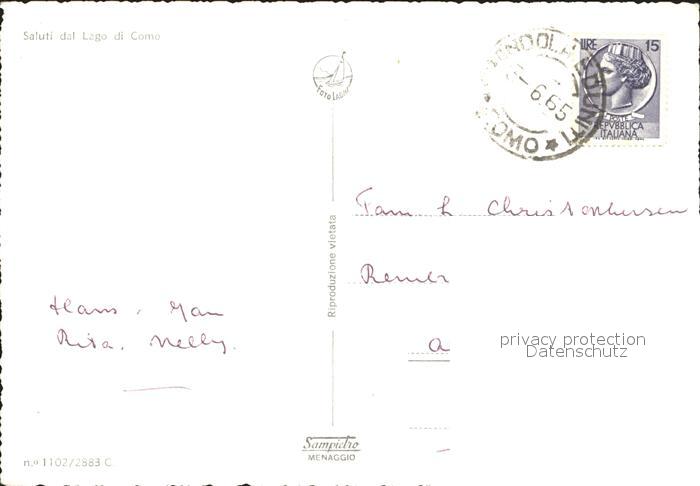 Saluti dal Lago di Como
FOTO LABOR
LIRE 15
6.65
COMO
POSTE
REPVBBLICA
ITALIANA
Riproduzione vietata
Fam L Christophersen
Hans, Jan
Rita, Nelly.
a
privacy protection
Datenschutz
Sampietro
MENAGGIO
n.º 1102/2883 C.